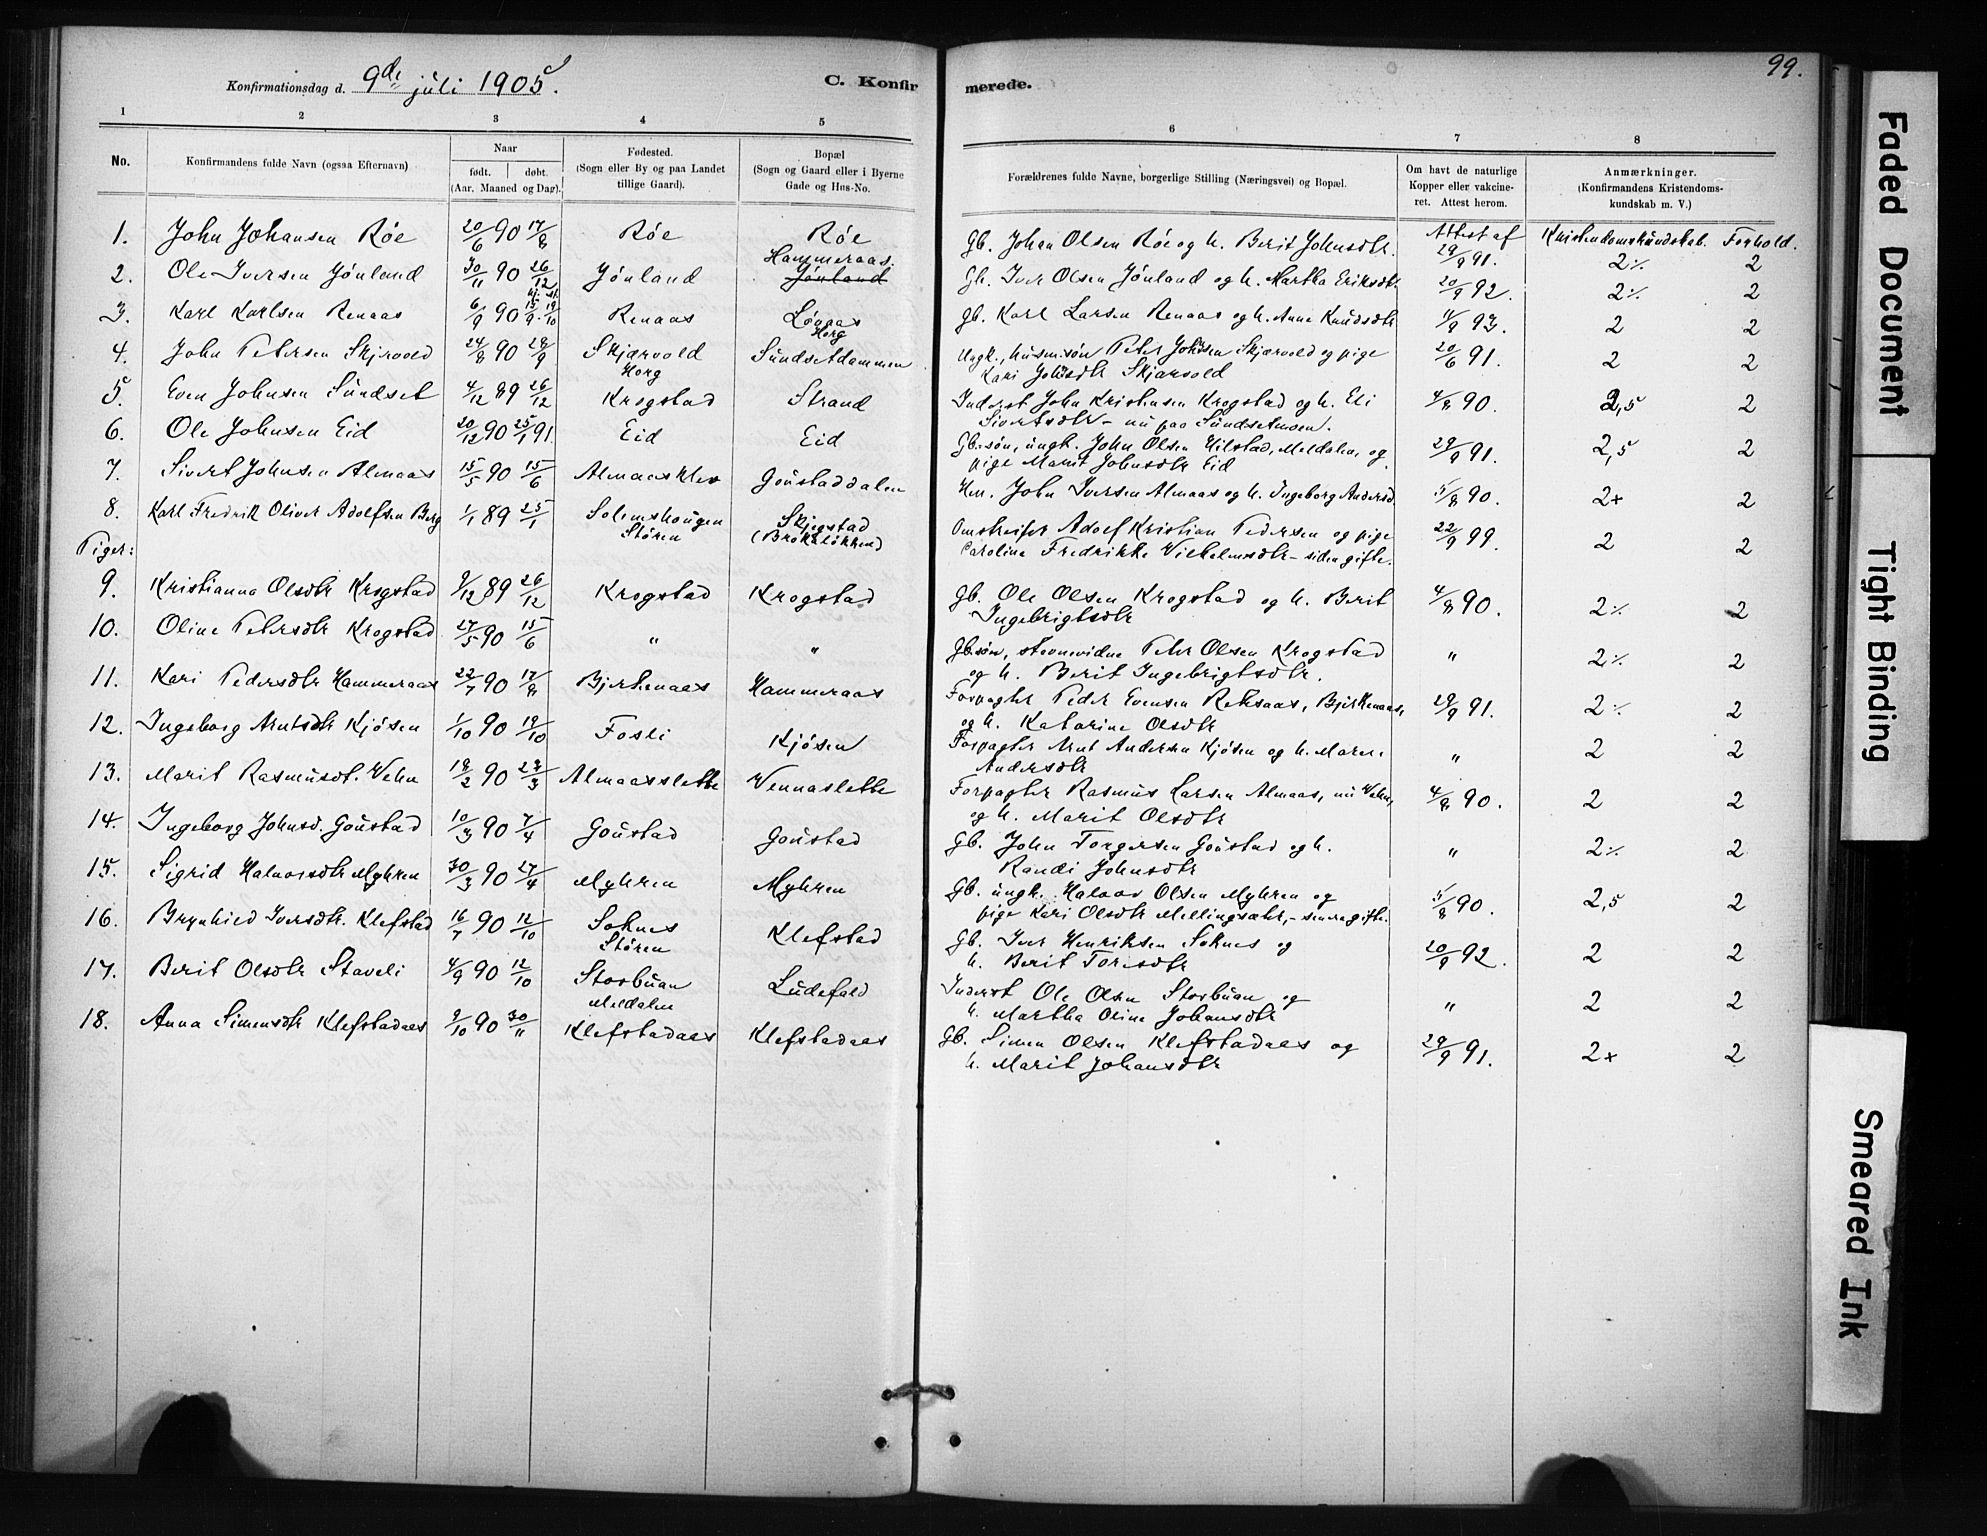 99.
Konfirmationsdag d. 9de juli 1905.
C. Konfirmerede.
1 2 3 4 5 6 7 8
No.
Konfirmandens fulde Navn (ogsaa Efternavn)
Naar
født. døbt.
(Aar, Maaned og Dag).
Fødested.
(Sogn eller By og paa Landet
tillige Gaard).
Bopæl
(Sogn og Gaard eller i Byerne
Gade og Hus-No.
Forældrenes fulde Navne, borgerlige Stilling (Næringsvei) og Bopæl.
Om havt de naturlige
Kopper eller vakcine-
ret. Attest herom.
Anmærkninger.
(Konfirmandens Kristendoms-
kundskab m. V.)
Attest af Kristendomskundskab. Forhold.
1. John Johansen Røe 20/6 90 17/8 Røe Røe Gb. Johan Olsen Røe og h. Berit Johnsdtr. 29/9 91. 2÷ 2
2. Ole Iversen Jønland 30/11 90 26/12 Jønland Hammeraas. Jønland Gb. Iver Olsen Jønland og h. Martha Eriksdtr. 20/9 92. 2÷ 2
3. Karl Karlsen Renaas 6/9 90 15/9 19/10 Renaas Løaas Gb. Karl Larsen Renaas og h. Anne Knudsdtr 4/9 93. 2 2
4. John Petersen Skjervold 24/8 90 28/9 Skjærvold Horg Sundsetdammen Ungk., husm.søn Peter Johnsen Skjærvold og pige
Kari Johnsdtr Skjærvold 20/6 91. 2 2
5. Even Johnsen Sundset 4/12 89 26/12 Horg Krogstad Strand Inderst John Kristensen Krogstad og h. Eli
Sivertsdtr – nu paa Sundsetmoen. 4/8 90. 2,5 2
6. Ole Johnsen Eid 20/12 90 25/1 91 Eid Eid Gb.søn, ungk. John Olsen Hilstad, Meldalen, og
pige Marit Johnsdtr Eid 29/9 91. 2,5 2
7. Sivert Johnsen Almaas 15/5 90 15/6 Almaasklev Goustaddalen Hm. John Iversen Almaas og h. Ingeborg Andersd. 5/8 90. 2+ 2
8. Karl Fredrik Oliver Adolfsen Berg 1/1 89 25/1 Solemshougen
Støren Skjegstad
(Brokkløkken) Omstreifer Adolf Kristian Pedersen og pige
Caroline Fredrikke Vilhelmsdtr – siden gifte. 22/9 99. 2 2
Piger:
9. Kristianna Olsdtr Krogstad 9/12 89 26/12 Krogstad Krogstad Gb. Ole Olsen Krogstad og h. Berit
Ingebrigtsdtr 4/8 90. 2÷ 2
10. Oline Petersdtr Krogstad 27/5 90 15/6 " " Gb.søn, stevnevidne Peter Olsen Krogstad
og h. Berit Ingebrigtsdtr. " 2÷ 2
11. Kari Pedersdtr Hammeraas 22/7 90 17/8 Bjerkenaas Hammeraas Forpagter Peder Evensen Reksaas, Bjerkenaas,
og h. Katarine Olsdtr 29/9 91. 2÷ 2
12. Ingeborg Arntsdtr Kjøsen 1/10 90 19/10 Fosli Kjøsen Forpagter Arnt Andersen Kjøsen og h. Maren
Andersdtr " 2 2
13. Marit Rasmusdt. Vehn 18/2 90 23/3 Almaasslette Vennaslette Forpagter Rasmus Larsen Almaas, nu Vehn,
og h. Marit Olsdtr 4/8 90. 2 2
14. Ingeborg Johnsd. Goustad 10/3 90 7/4 Goustad Goustad Gb. John Torgersen Goustad og h.
Randi Johnsdtr " 2÷ 2
15. Sigrid Halvorsdtr Myhren 30/3 90 27/4 Myhren Myhren Gb. ungk. Halvor Olsen Myhren og
pige Kari Olsdtr Mellingsæter, – senere gifte. 5/8 90. 2,5 2
16. Brynhild Iversdtr. Klefstad 16/7 90 12/10 Soknes
Støren Klefstad Gb. Iver Henriksen Soknes og
h. Berit Toresdtr 20/9 92. 2 2
17. Berit Olsdtr Staveli 4/9 90 12/10 Storbuan
Meldalen Ludefald Inderst Ole Olsen Storbuan og
h. Martha Oline Johansdtr " 2 2
18. Anna Simensdtr Klefstadaas 9/10 90 30/11 Klefstadaas Klefstadaas Gb. Simen Olsen Klefstadaas og
h. Marit Johansdtr 29/9 91. 2+ 2
Faded Document
Tight Binding
Smeared Ink